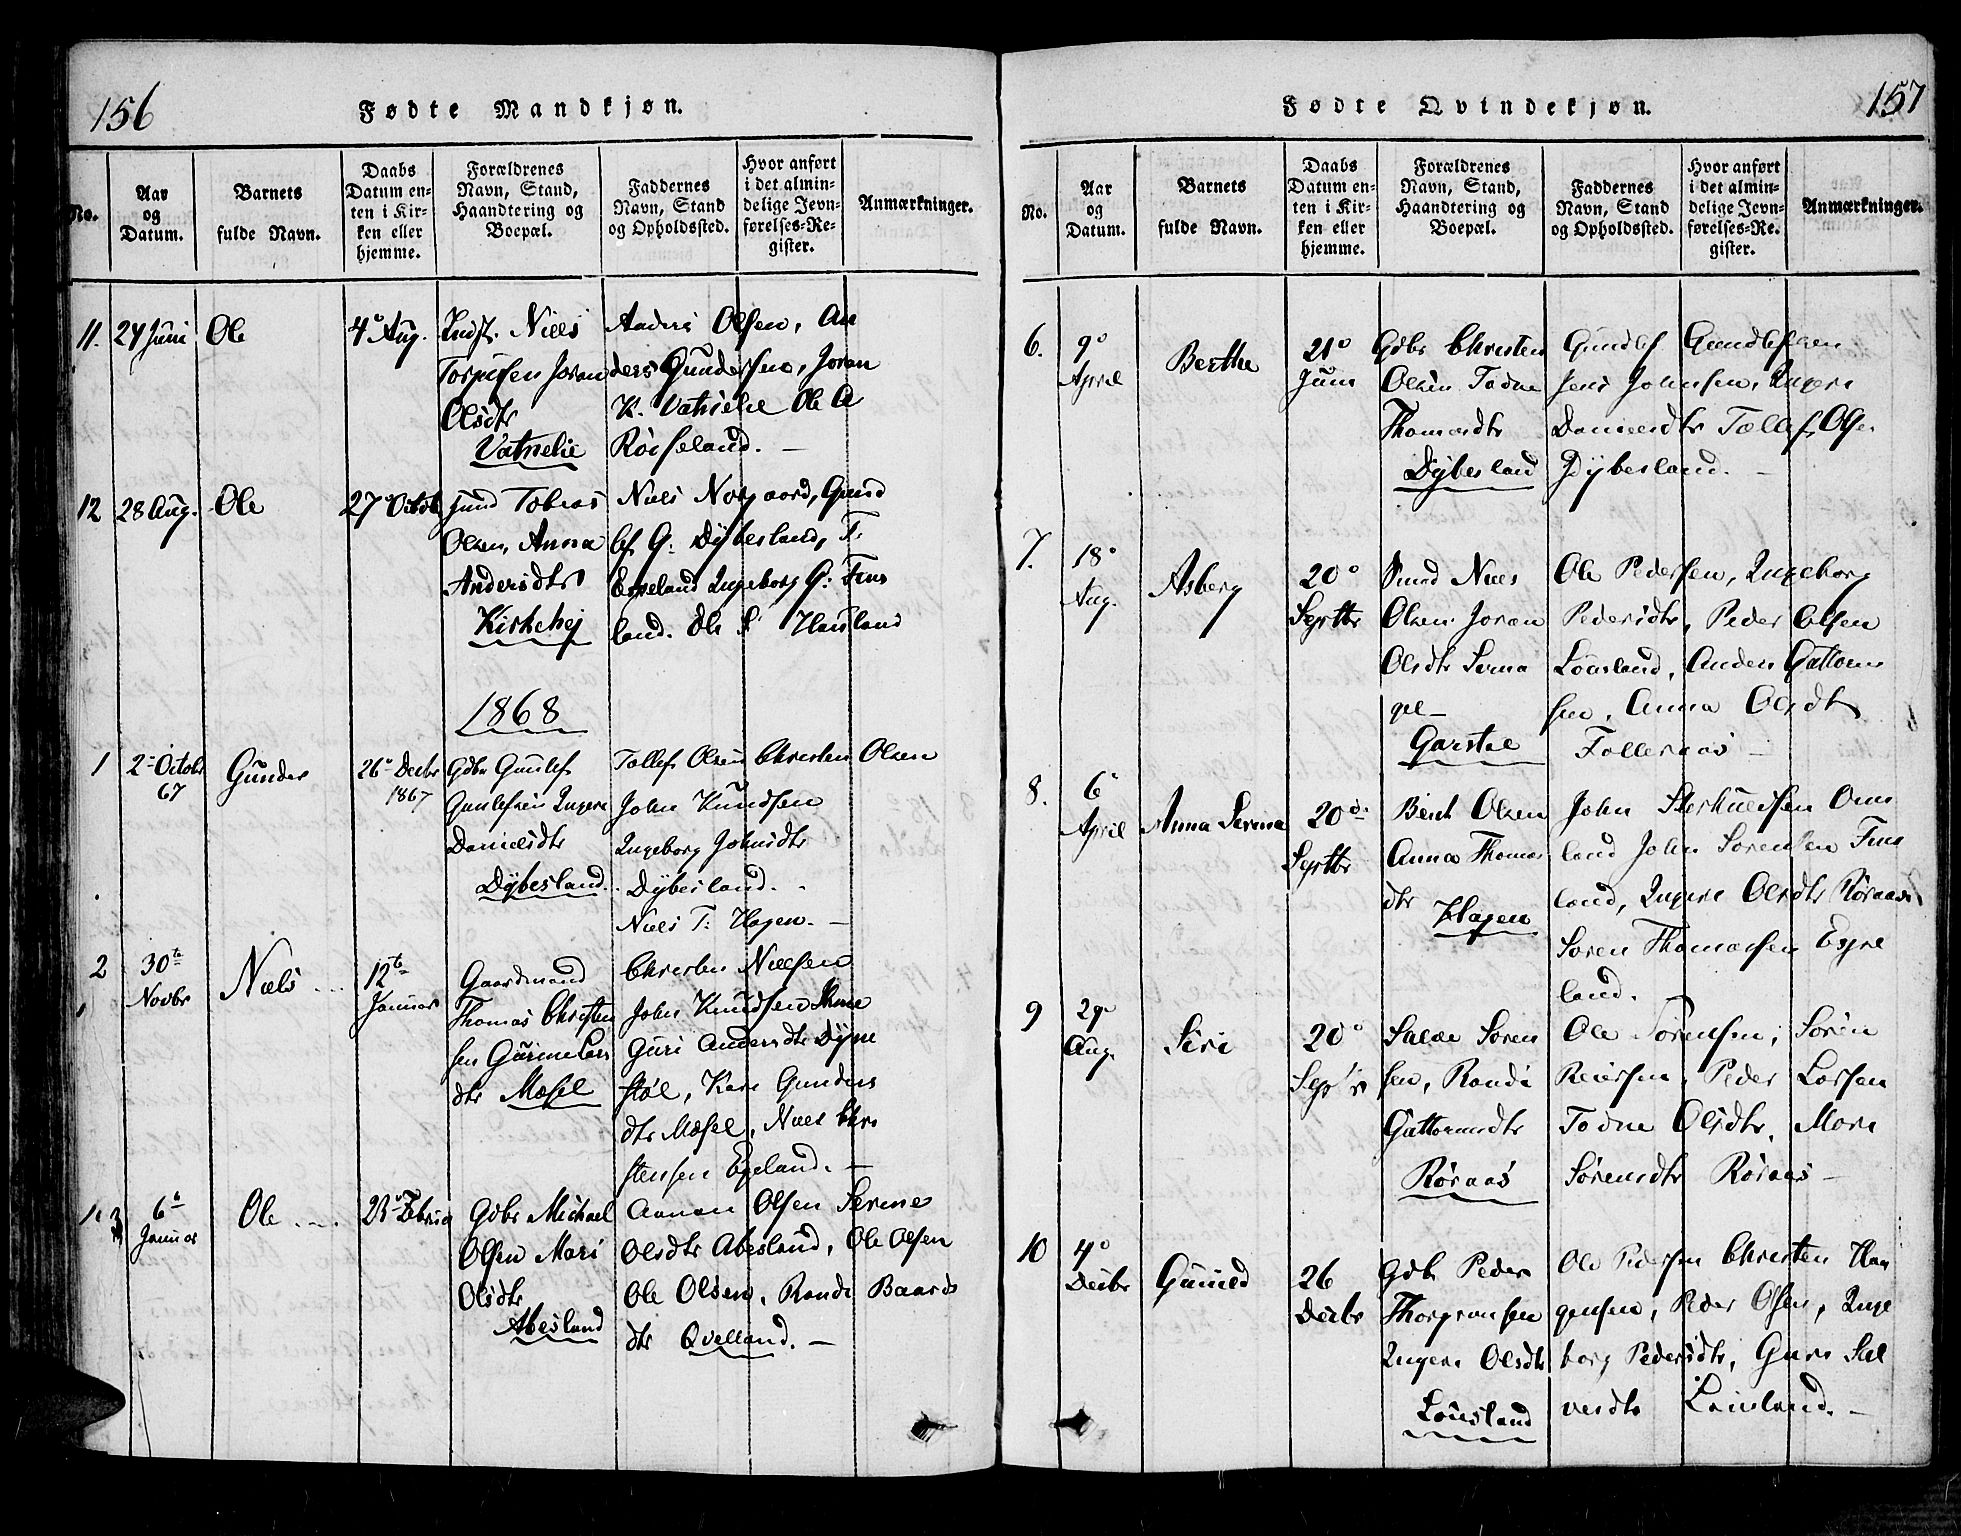 156
Fødte Mandkjøn.
No.
Aar
og
Datum.
Barnets
fulde Navn.
Daabs
Datum en-
ten i Kir-
ken eller
hjemme.
Forældrenes
Navn, Stand,
Haandtering og
Boepæl.
Faddernes
Navn, Stand
og Opholdssted.
Hvor anført
i det almin-
delige Jevn-
førelses-Re-
gister.
Anmærkninger.
11. 24 Juni Ole 4de Aug.
Niels
Joran
Olsdtr
Vatnelie
Anders Olsen, An
ders Gundersen, Joran
K. Vatnelie Ole A
Røiseland.
12 28 Aug. Ole 27 Octob
Tobias
Olsen, Anna
Andersdtr
Kirkehej
Niels Norgaard, Gund
lef G. Dybesland, T.
Eppeland Ingeborg G. Fins
land. Ole S. Hausland
1868
1 2 Octobr
67
Gunder
26 Decbr
1867
Gdbr Gunlef
Gunlefsen Ingere
Danielsdtr
Dybesland.
Tollef Olsen Christen Olsen
John Knudsen
Ingeborg Johnsdtr
Dybesland.
Niels T. Hagen.
2 30te
Novbr
Niels
12te
Januar
Gaardmand
Thomas Christen
sen Gurine Lars
dtr Mæsel
Christen Nielsen
John Knudsen
Guri Andersdtr Dyne
støl, Kari Gunders
dtr Mæsel, Niels Chri
stensen Egeland.
3 6te
Januar
Ole
Gdbr Michael
Olsen Mari
Olsdtr
Abesland
Aanon Olsen Serine
Olsdtr Abesland, Ole Olsen
Ole Olsen, Randi Baards
dtr Qvelland.
157
Fødte Qvindekjøn.
No.
Aar
og
Datum.
Barnets
fulde Navn.
Daabs
Datum en-
ten i Kir-
ken eller
hjemme.
Forældrenes
Navn, Stand,
Haandtering og
Boepæl.
Faddernes
Navn, Stand
og Opholdssted.
Hvor anført
i det almin-
delige Jevn-
førelses-Re-
gister.
Anmærkninger.
6. 9de
April
Berthe
21de
Juni
Gdbr Christen
Olsen Todne
Thomasdtr
Dybesland
Gundlef Gundlefsen
Jens Johnsen, Ingere
Danielsdtr Tollef Olsen
Dybesland.
7. 18de
Aug.
Asberg
20de
Septbr
Niels
Olsen Joran
Olsdtr
Garstøl
Ole Pedersen, Ingeborg
Pedersdtr, Peder Olsen
Lønsland, Anders Guttorm
sen, Anna Olsdtr
Folleraas
8. 6
April
Anna Serina
20de
Septbr
Berit Olsen
Anna Thomas
dtr
Hagen
land John Sørensen Fins
land, Ingere Olsdtr Røraas,
Søren Thomassen Eppe
land.
9 29
Aug.
Siri
20de
Sepbr
Salve Søren
sen, Randi
Guttormsdtr
Røraas
Ole Sørensen, Søren
Reiersen, Peder Larsen
Todne Olsdtr, Mari
Sørensdtr Røraas
10 4de
Decbr
Gunild
26
Decbr
Gdbr Peder
Thorgrimsen
Ingeri Olsdtr
Lønsland
Ole Pedersen Christen Haa
gensen, Peder Olsen, Inge
borg Pedersdtr, Guri Sal
vesdtr Lønsland.